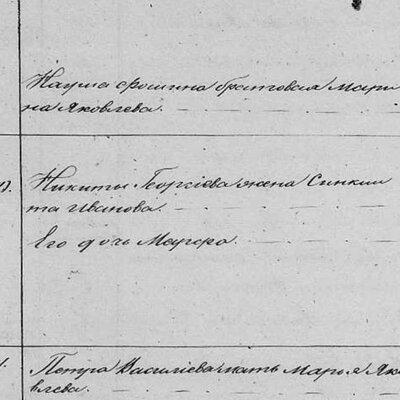 Наума Фомина братовая Мари
на Яковлева.
Никиты Георгіева жена Синкли
та Иванова.
Его дочь Марфа.
Петра Василіева мать Марья Яко
влева.